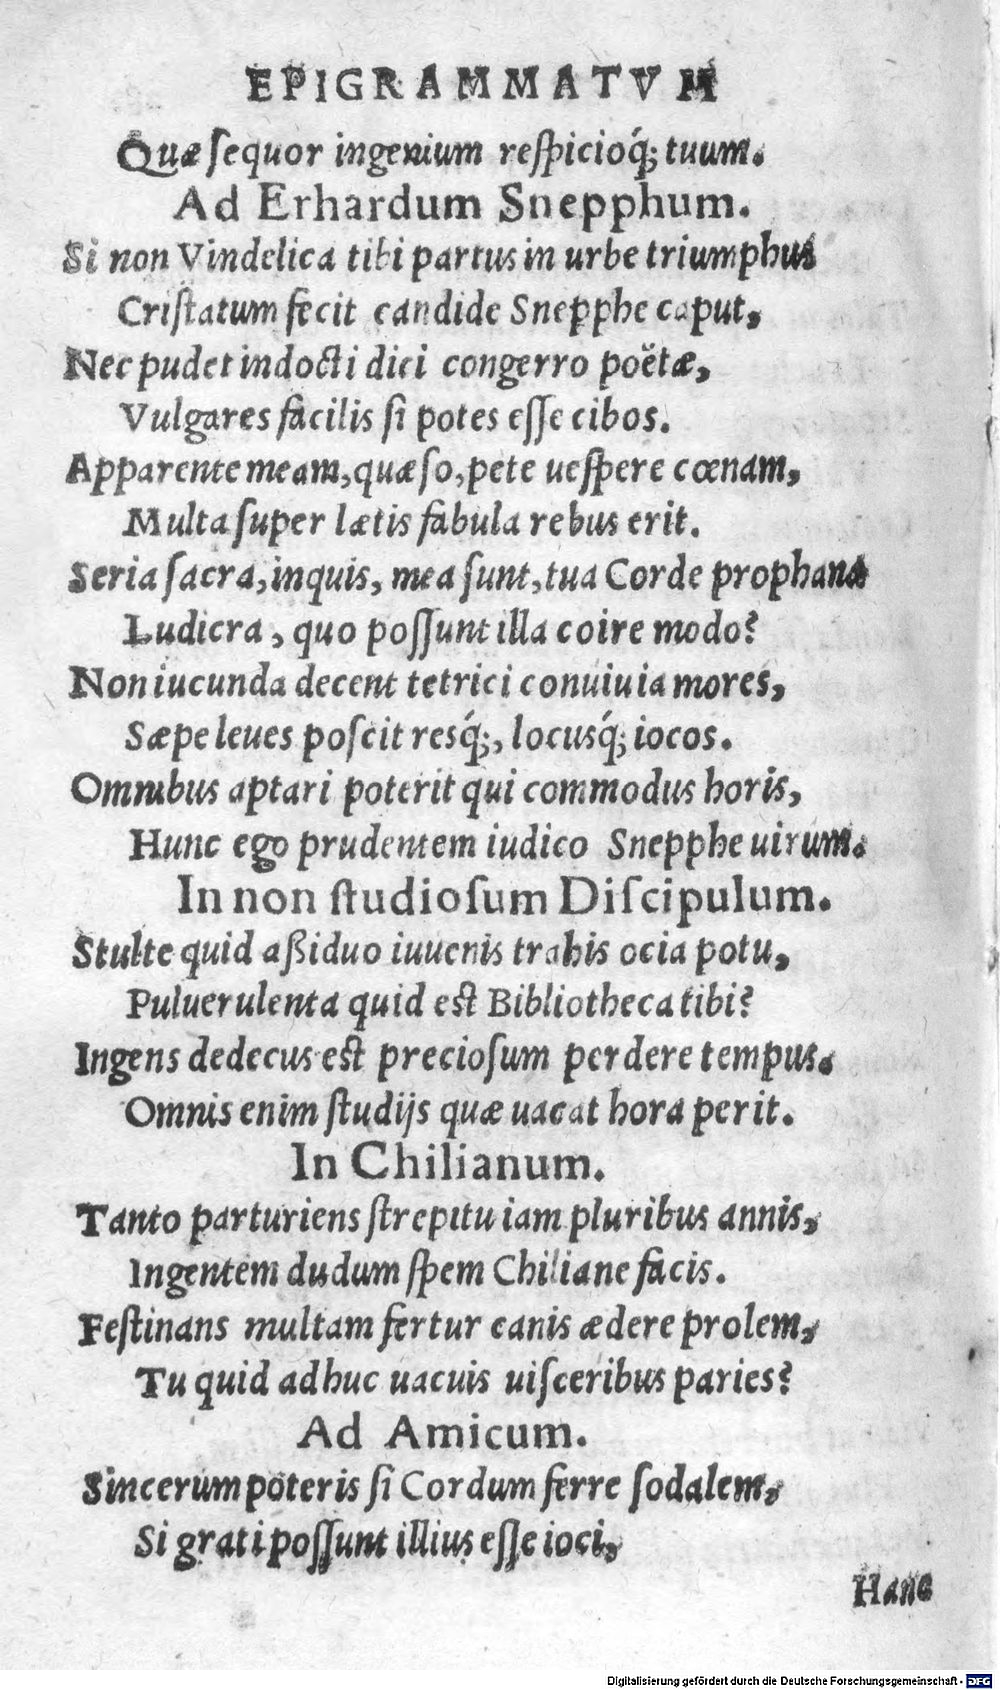 EPIGRAMMATVM
Quæ ſequor ingenium reſpicioq́; tuum.
Ad Erhardum Snepphum.
Si non Vindelica tibi partus in urbe triumphus
Criſtatum fecit candide Snepphe caput,
Nec pudet indocti dici congerro poëtæ,
Vulgares facilis ſi potes eſſe cibos.
Apparente meam, quæſo, pete ueſpere cœnam,
Multa ſuper lætis fabula rebus erit.
Seria ſacra, inquis, mea ſunt, tua Corde prophana
Ludicra, quo poſſunt illa coire modo?
Non iucunda decent tetrici conuiuia mores,
Sæpe leues poſcit resq́;, locusq́; iocos.
Omnibus aptari poterit qui commodus horis,
Hunc ego prudentem iudico Snepphe uirum.
In non ſtudioſum Diſcipulum.
Stulte quid aßiduo iuuenis trahis ocia potu,
Puluerulenta quid eſt Bibliotheca tibi?
Ingens dedecus eſt precioſum perdere tempus.
Omnis enim ſtudijs quæ uacat hora perit.
In Chilianum.
Tanto parturiens ſtrepitu iam pluribus annis,
Ingentem dudum ſpem Chiliane facis.
Feſtinans multam fertur canis ædere prolem,
Tu quid adhuc uacuis uiſceribus paries?
Ad Amicum.
Sincerum poteris ſi Cordum ferre ſodalem,
Si grati poſſunt illius eſſe ioci,
Hanc
Digitalisierung gefördert durch die Deutsche Forschungsgemeinschaft - DFG